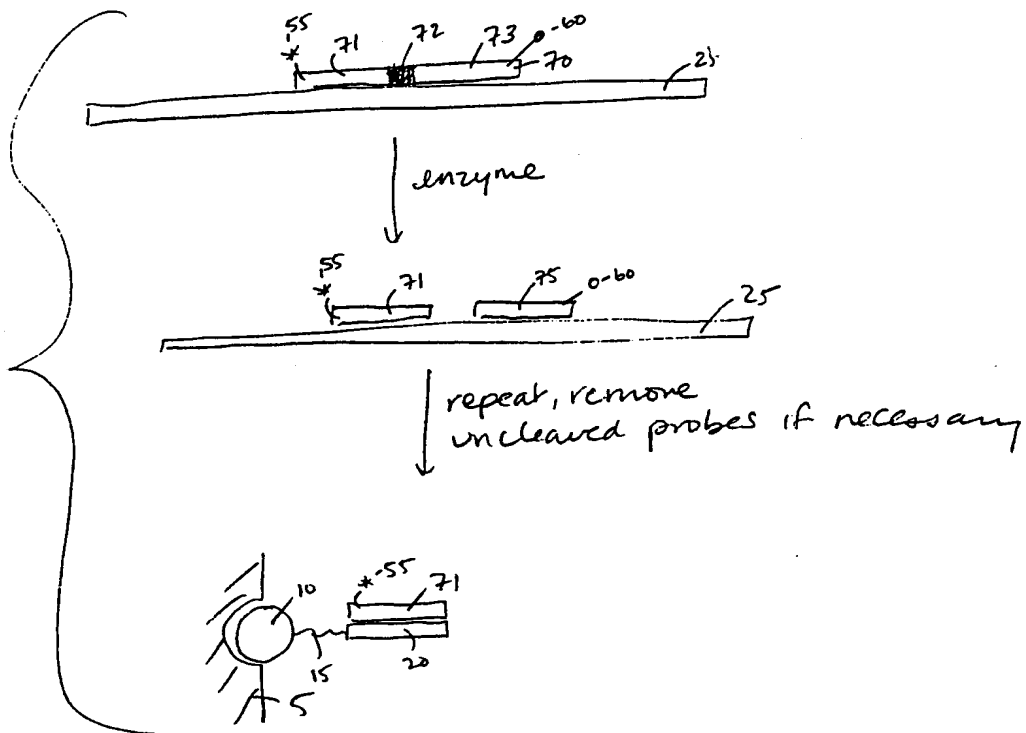 *55 71 72 73 -60
70
25
enzyme
*55 71 75 0-60
25
repeat, remove
uncleaved probes if necessary
10 *-55 71
15 20
5